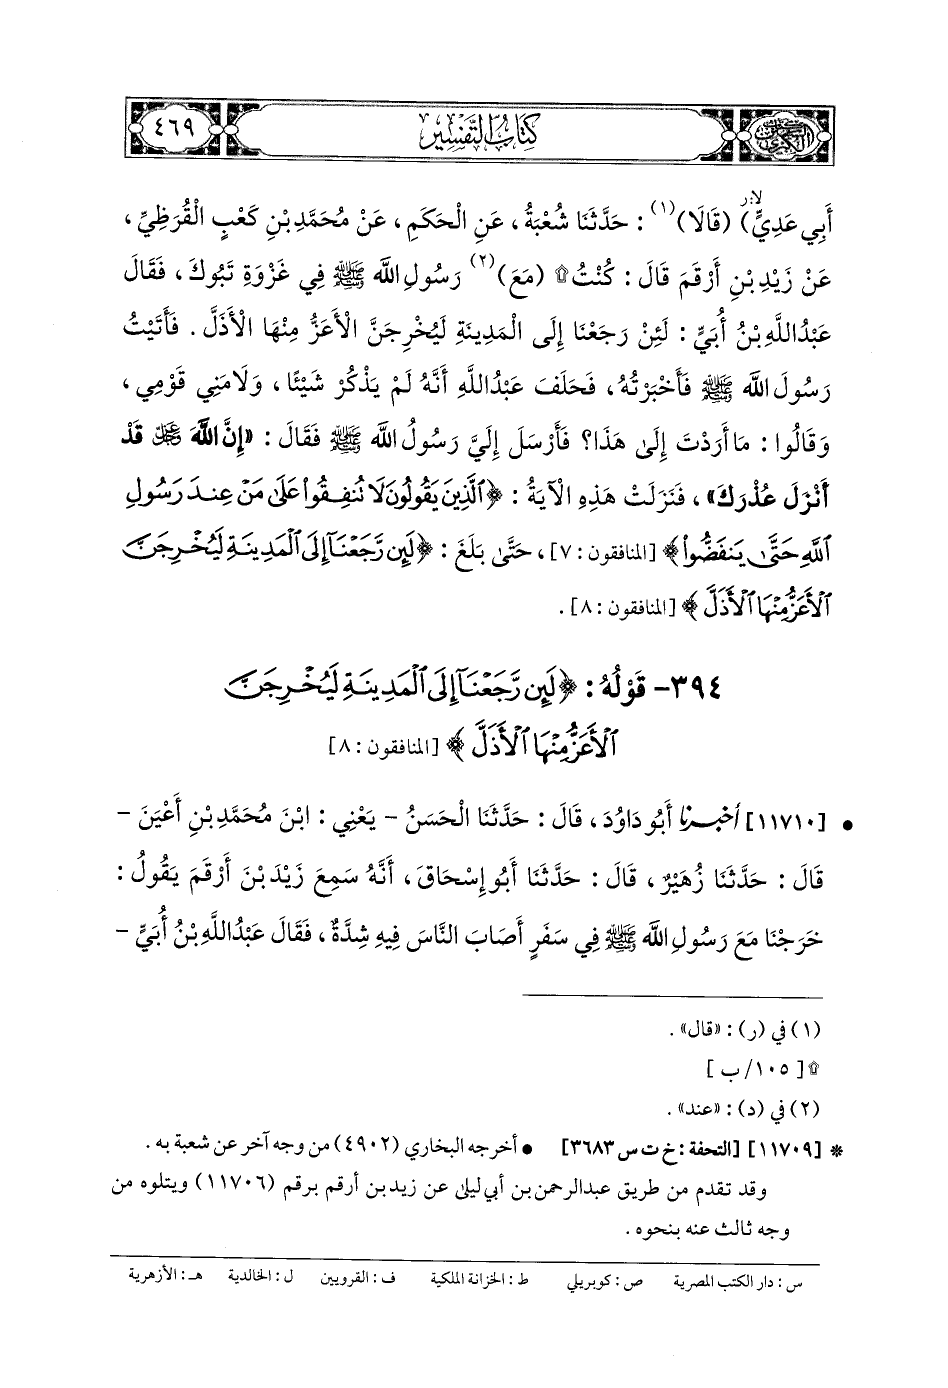 كتاب التفسير
٤٦٩
أَبِي عَدِيٍّ) (قَالَا)(١) : حَدَّثَنَا شُعْبَةُ ، عَنِ الْحَكَمِ ، عَنْ مُحَمَّدِ بْنِ كَعْبٍ الْقُرَظِيِّ ،
عَنْ زَيْدِ بْنِ أَرْقَمَ قَالَ : كُنْتُ۩ (مَعَ)(٢) رَسُولِ اللَّهِ ﷺ فِي غَزْوَةِ تَبُوكَ ، فَقَالَ
عَبْدُ اللَّهِ بْنُ أُبَيٍّ : لَئِنْ رَجَعْنَا إِلَى الْمَدِينَةِ لَيُخْرِجَنَّ الْأَعَزُّ مِنْهَا الْأَذَلَّ . فَأَتَيْتُ
رَسُولَ اللَّهِ ﷺ فَأَخْبَرْتُهُ، فَحَلَفَ عَبْدُ اللَّهِ أَنَّهُ لَمْ يَذْكُرْ شَيْئًا ، وَلَامَنِي قَوْمِي ،
وَقَالُوا : مَا أَرَدْتَ إِلَى هَذَا؟ فَأَرْسَلَ إِلَيَّ رَسُولُ اللَّهِ ﷺ فَقَالَ : «إِنَّ اللَّهَ ﷻ قَدْ
أَنْزَلَ عُذْرَكَ» ، فَنَزَلَتْ هَذِهِ الْآيَةُ : ﴿الَّذِينَ يَقُولُونَ لَا تُنفِقُوا عَلَىٰ مَنْ عِندَ رَسُولِ
اللَّهِ حَتَّىٰ يَنفَضُّوا﴾ [المنافقون : ٧] ، حَتَّى بَلَغَ : ﴿لَئِن رَّجَعْنَا إِلَى الْمَدِينَةِ لَيُخْرِجَنَّ
الْأَعَزُّ مِنْهَا الْأَذَلَّ﴾ [المنافقون : ٨] .
٣٩٤- قَوْلُهُ : ﴿لَئِن رَّجَعْنَا إِلَى الْمَدِينَةِ لَيُخْرِجَنَّ
الْأَعَزُّ مِنْهَا الْأَذَلَّ﴾ [المنافقون : ٨]
• [١١٧١٠] أخبرنا أَبُو دَاوُدَ ، قَالَ : حَدَّثَنَا الْحَسَنُ - يَعْنِي : ابْنَ مُحَمَّدِ بْنِ أَعْيَنَ -
قَالَ : حَدَّثَنَا زُهَيْرٌ ، قَالَ : حَدَّثَنَا أَبُو إِسْحَاقَ ، أَنَّهُ سَمِعَ زَيْدَ بْنَ أَرْقَمَ يَقُولُ :
خَرَجْنَا مَعَ رَسُولِ اللَّهِ ﷺ فِي سَفَرٍ أَصَابَ النَّاسَ فِيهِ شِدَّةٌ ، فَقَالَ عَبْدُ اللَّهِ بْنُ أُبَيٍّ -
(١) في (ر) : «قال» .
۩ [ ١٠٥/ ب ]
(٢) في (د) : «عند» .
* [١١٧٠٩] [التحفة : خ ت س ٣٦٨٣] • أخرجه البخاري (٤٩٠٢) من وجه آخر عن شعبة به .
وقد تقدم من طريق عبدالرحمن بن أبي ليلى عن زيد بن أرقم برقم (١١٧٠٦) ويتلوه من
وجه ثالث عنه بنحوه .
س : دار الكتب المصرية ص : كوبريلي ط : الخزانة الملكية ف : القرويين ل : الخالدية هـ : الأزهرية